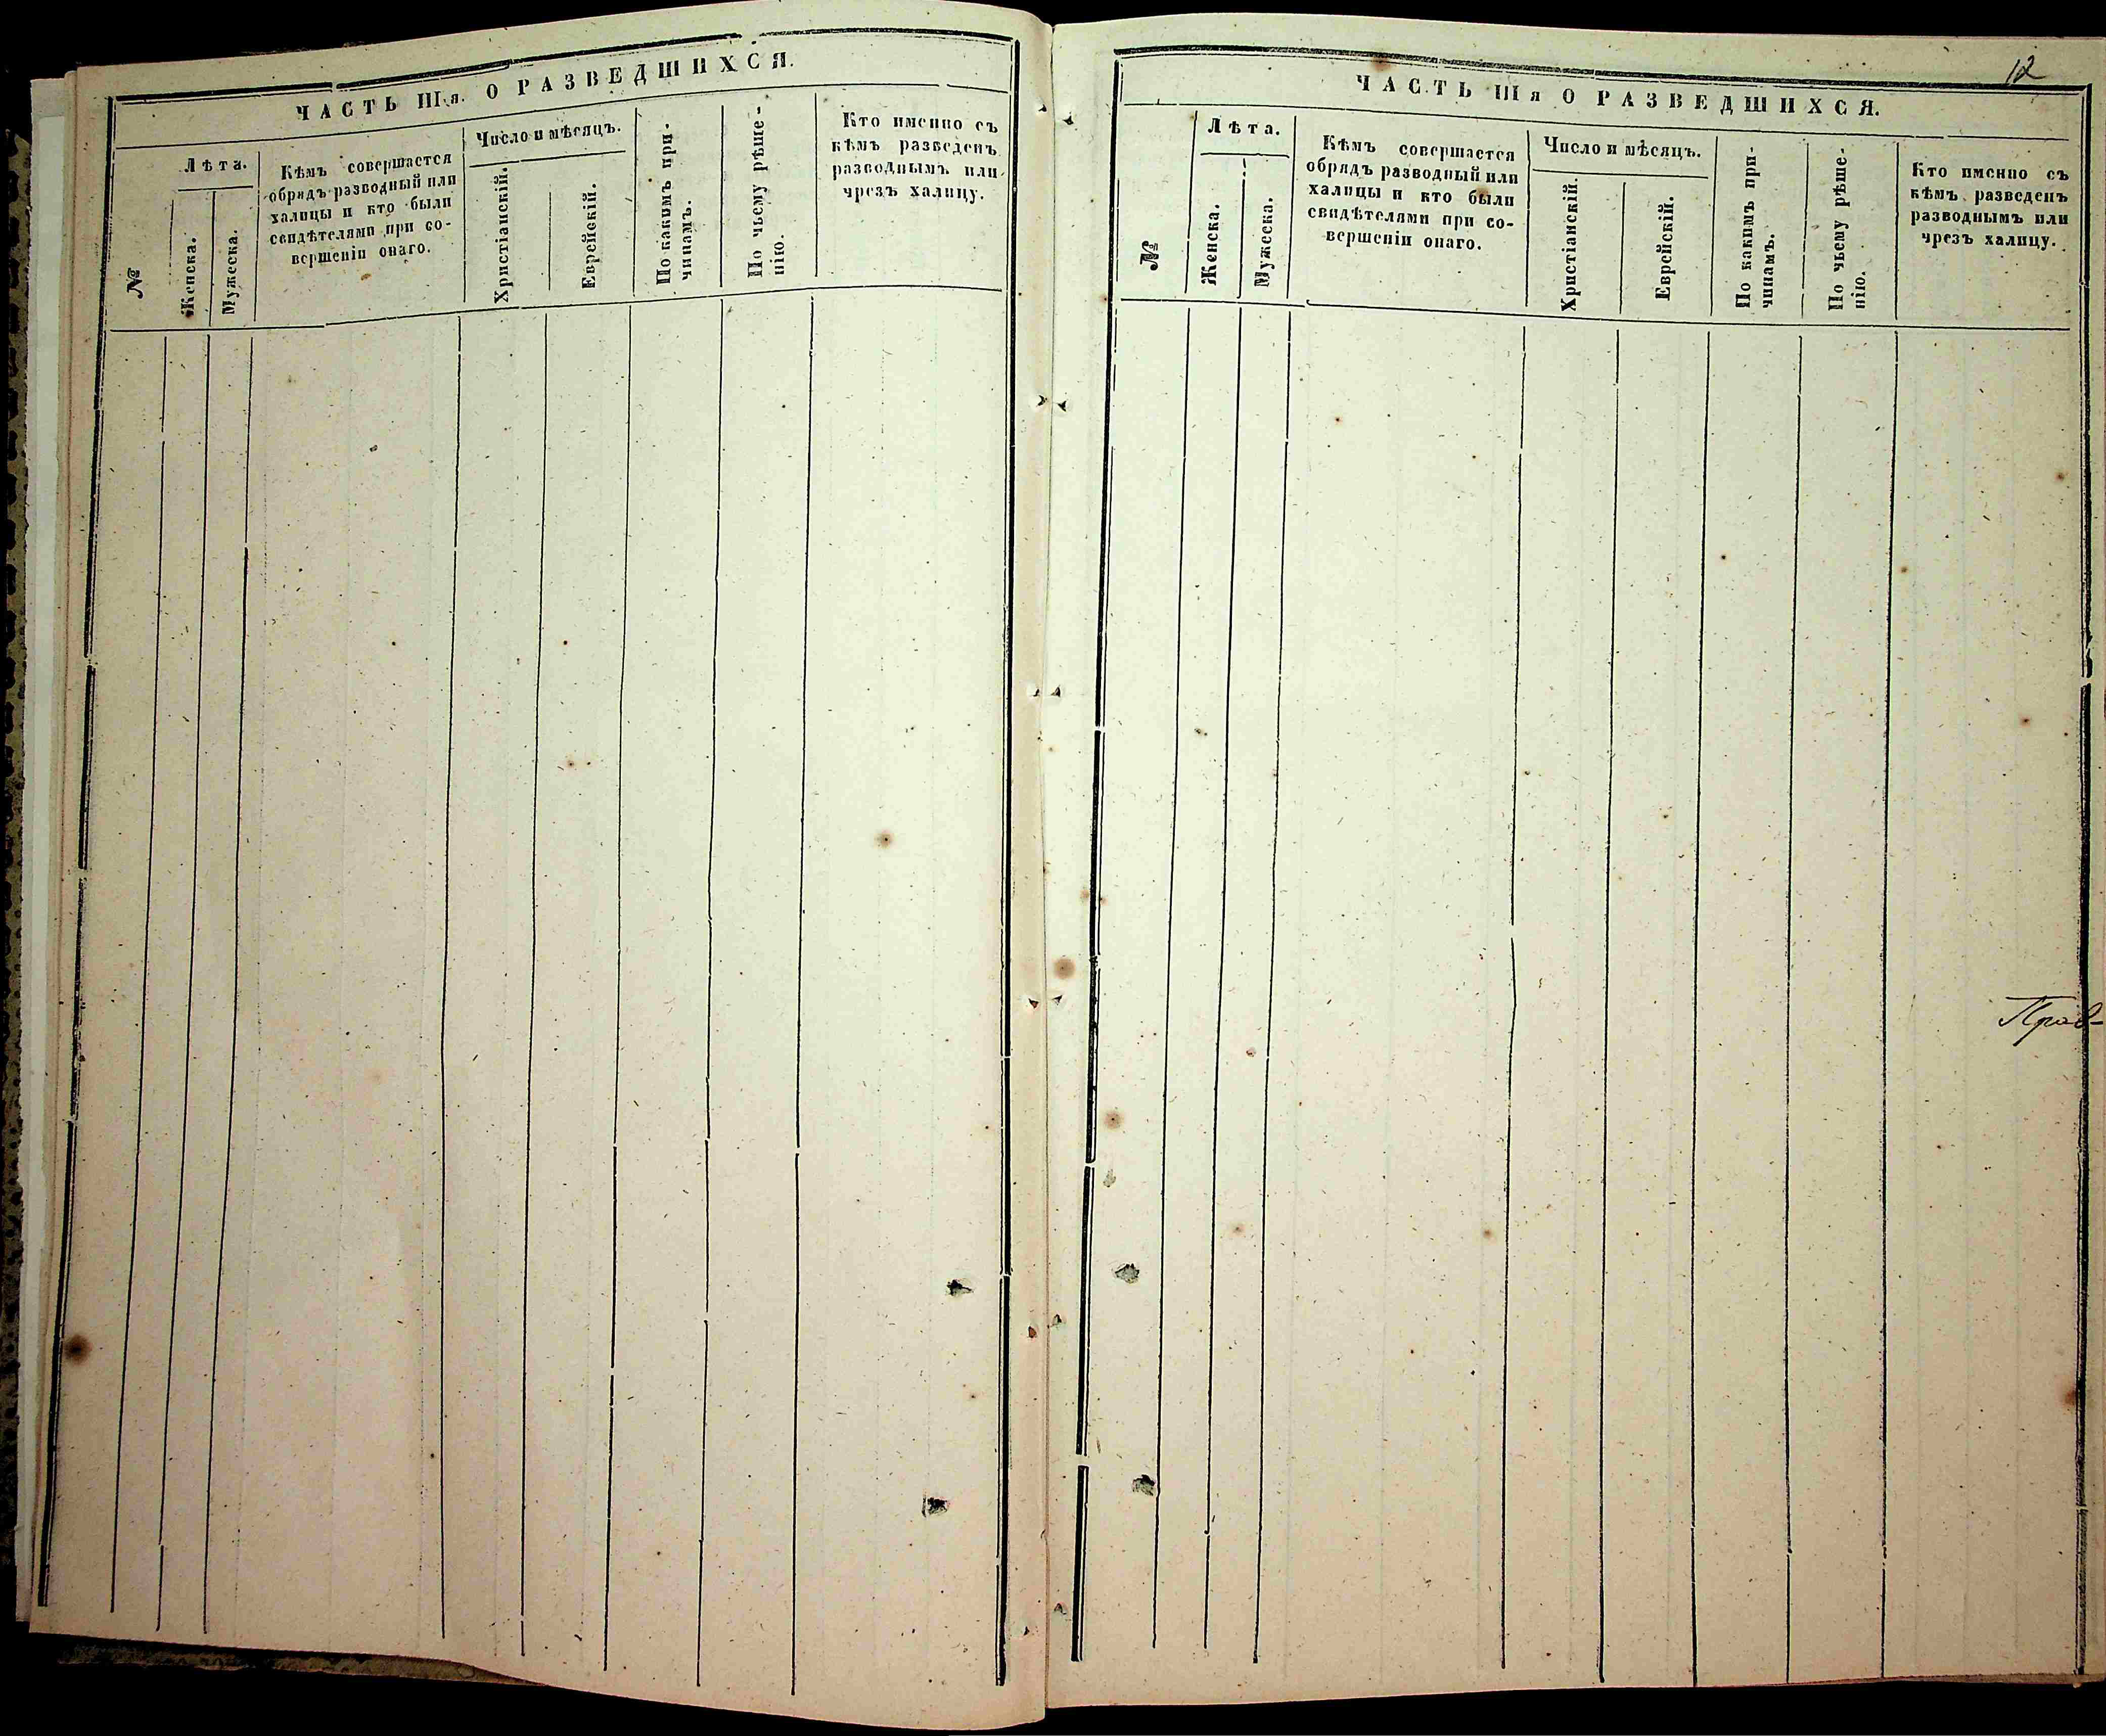 ЧАСТЬ IIIя. О РАЗВЕДШИХСЯ.
№
Лѣта.
Женска.
Мужеска.
Кѣмъ совершается
обрядъ разводный или
халицы и кто были
свидѣтелями при со-
вершеніи онаго.
Число и мѣсяцъ.
Христіанскій.
Еврейскій.
По какимъ при-
чинамъ.
По чьему рѣше-
нію.
Кто именно съ
кѣмъ разведенъ
разводнымъ или
чрезъ халицу.
12
ЧАСТЬ IIIя О РАЗВЕДШИХСЯ.
№
Лѣта.
Женска.
Мужеска.
Кѣмъ совершается
обрядъ разводный или
халицы и кто были
свидѣтелями при со-
вершеніи онаго.
Число и мѣсяцъ.
Христіанскій.
Еврейскій.
По какимъ при-
чинамъ.
По чьему рѣше-
нію.
Кто именно съ
кѣмъ разведенъ
разводнымъ или
чрезъ халицу.